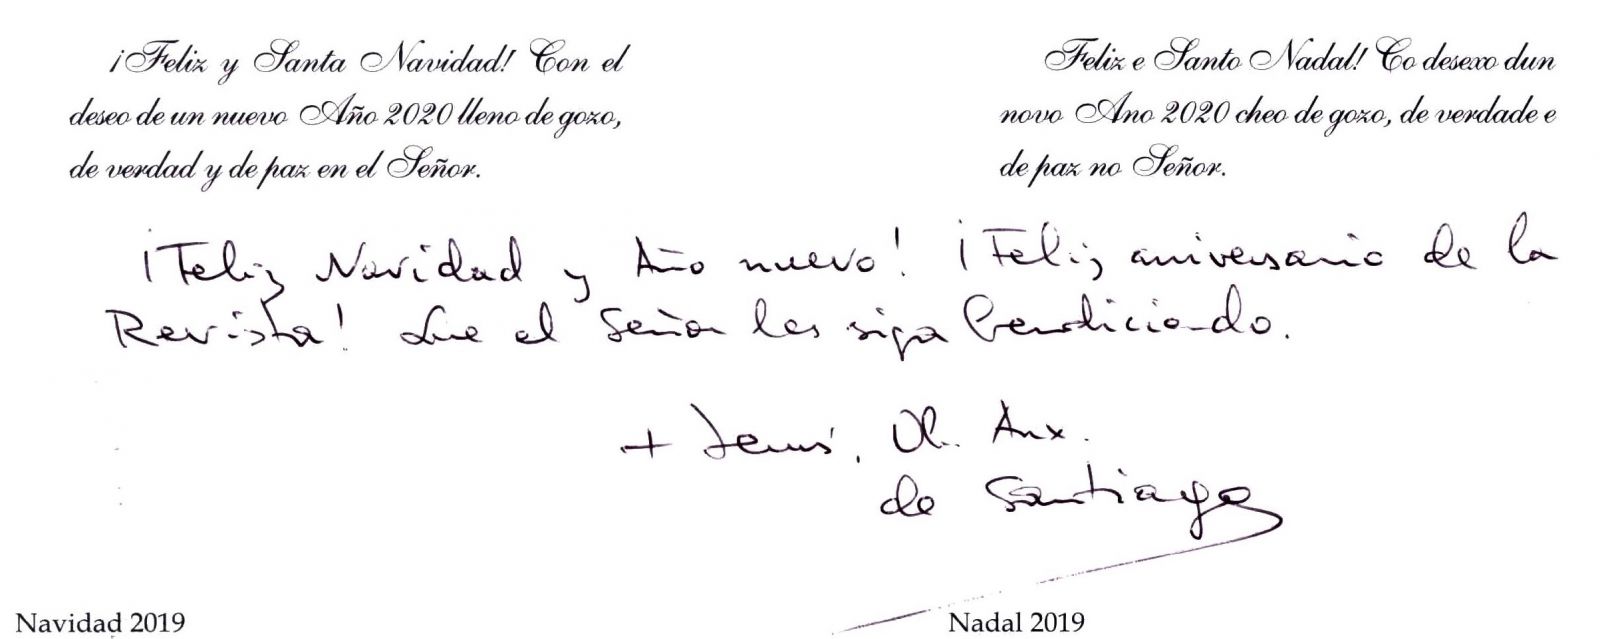 ¡Feliz y Santa Navidad! Con el
deseo de un nuevo Año 2020 lleno de gozo,
de verdad y de paz en el Señor.
Feliz e Santo Nadal! Co desexo dun
novo Ano 2020 cheo de gozo, de verdade e
de paz no Señor.
¡Feliz Navidad y Año nuevo! ¡Feliz aniversario de la
Revista! Que el Señor les siga bendiciendo.
+ Jesús, Ob. Aux.
de Santiago
Navidad 2019
Nadal 2019